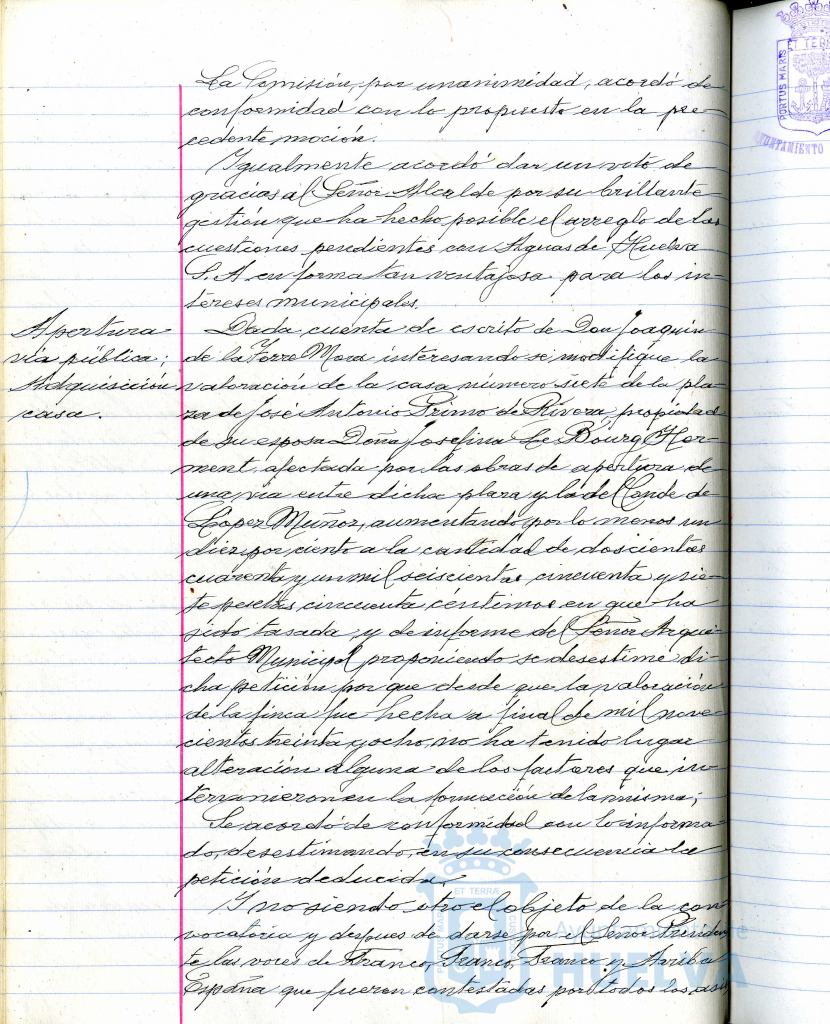 PORTUS MARIS
ET TERR
AYUNTAMIENTO
La Comisión, por unanimidad, acordó de
conformidad con lo propuesto en la pre-
cedente moción.
Igualmente acordó dar un voto de
gracias al Señor Alcalde por su brillante
gestión que ha hecho posible el arreglo de las
cuestiones pendientes con Aguas de Huelva
S.A. en forma tan ventajosa para los in-
tereses municipales.
Apertura
vía pública:
Adquisición
casa.
Dada cuenta de escrito de Don Joaquín
de la Torre Mora interesando se modifique la
valoración de la casa número siete de la pla-
za de José Antonio Primo de Rivera, propiedad
de su esposa Doña Josefina Le Bourg Her-
ment, afectada por las obras de apertura de
una vía entre dicha plaza y la del Conde de
López Muñoz, aumentando por lo menos un
diez por ciento a la cantidad de doscientas
cuarenta y un mil seiscientas cincuenta y sie-
te pesetas, cincuenta céntimos en que ha
sido tasada y de informe del Señor Arqui-
tecto Municipal proponiendo se desestime di-
cha petición por que desde que la valoración
de la finca fue hecha a final de mil nove-
cientos treinta y ocho, no ha tenido lugar
alteración alguna de los factores que in-
tervinieron en la formación de la misma;
Se acordó de conformidad con lo informa-
do, desestimando, en su consecuencia la
petición deducida.
Y no siendo otro el objeto de la con-
vocatoria y despues de darse por el Señor Presiden-
te las voces de Franco, Franco, Franco y Arriba
España que fueron contestadas por todos los asis
ET TERRÆ
PORTUS MARIS
Ayuntamiento de
HUELVA